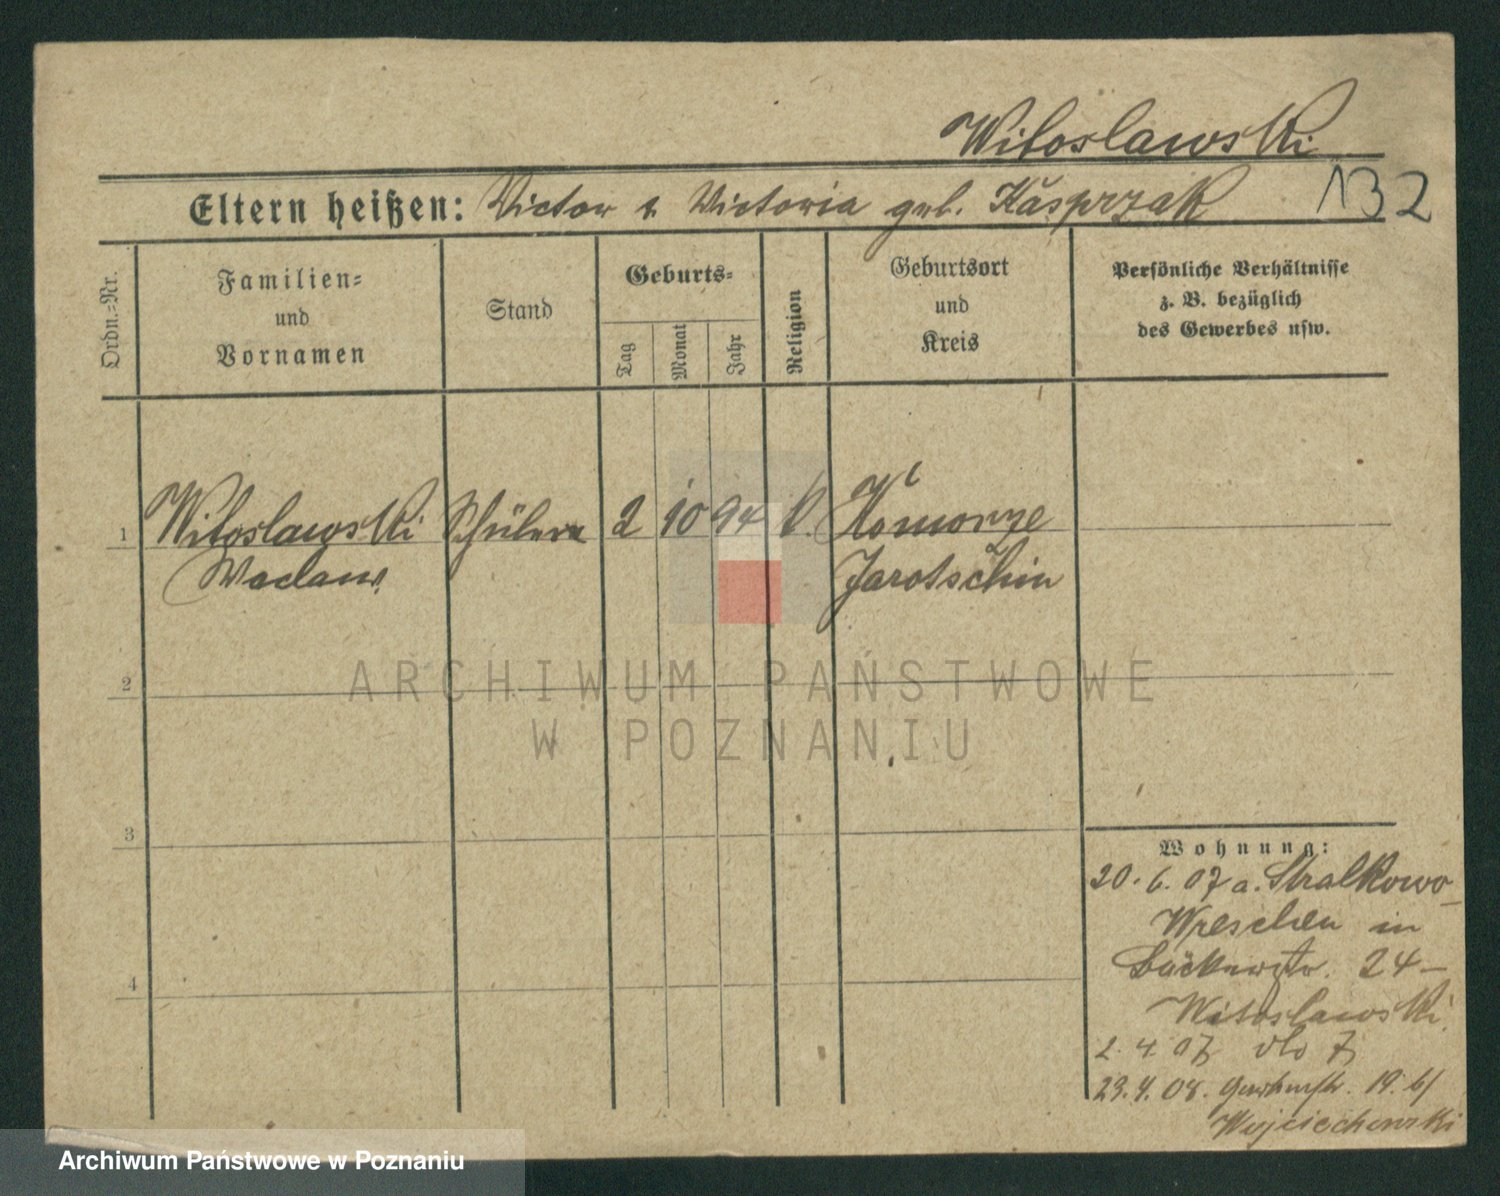 Witoslawski
Eltern heißen: Victor u Victoria geb. Kasprzak 132
Ordn.-Nr.
Familien-
und
Vornamen
Stand
Geburts-
Tag
Monat
Jahr
Religion
Geburtsort
und
Kreis
Persönliche Verhältnisse
z. B. bezüglich
des Gewerbes usw.
1 Witoslawski Schüler 2 10 94 k. Komorze
Waclaw Jarotschin
2
3
4
Wohnung:
20. 6. 07 a. Stralkowo
Wreschen in
Bäckerstr. 24
Witoslawski
2. 4. 07 7
23. 4. 08. 19. b/
Wojciechowski
ARCHIWUM PAŃSTWOWE
W POZNANIU
Archiwum Państwowe w Poznaniu